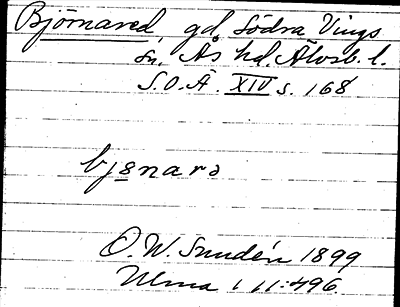 Björnared, gd, Södra Vings
sn, Ås hd. Älvsb. l.
S.O.Ä. XIV s. 168
bjɵnarə
O. W. Sundén 1899
Ulma 1 11:496.